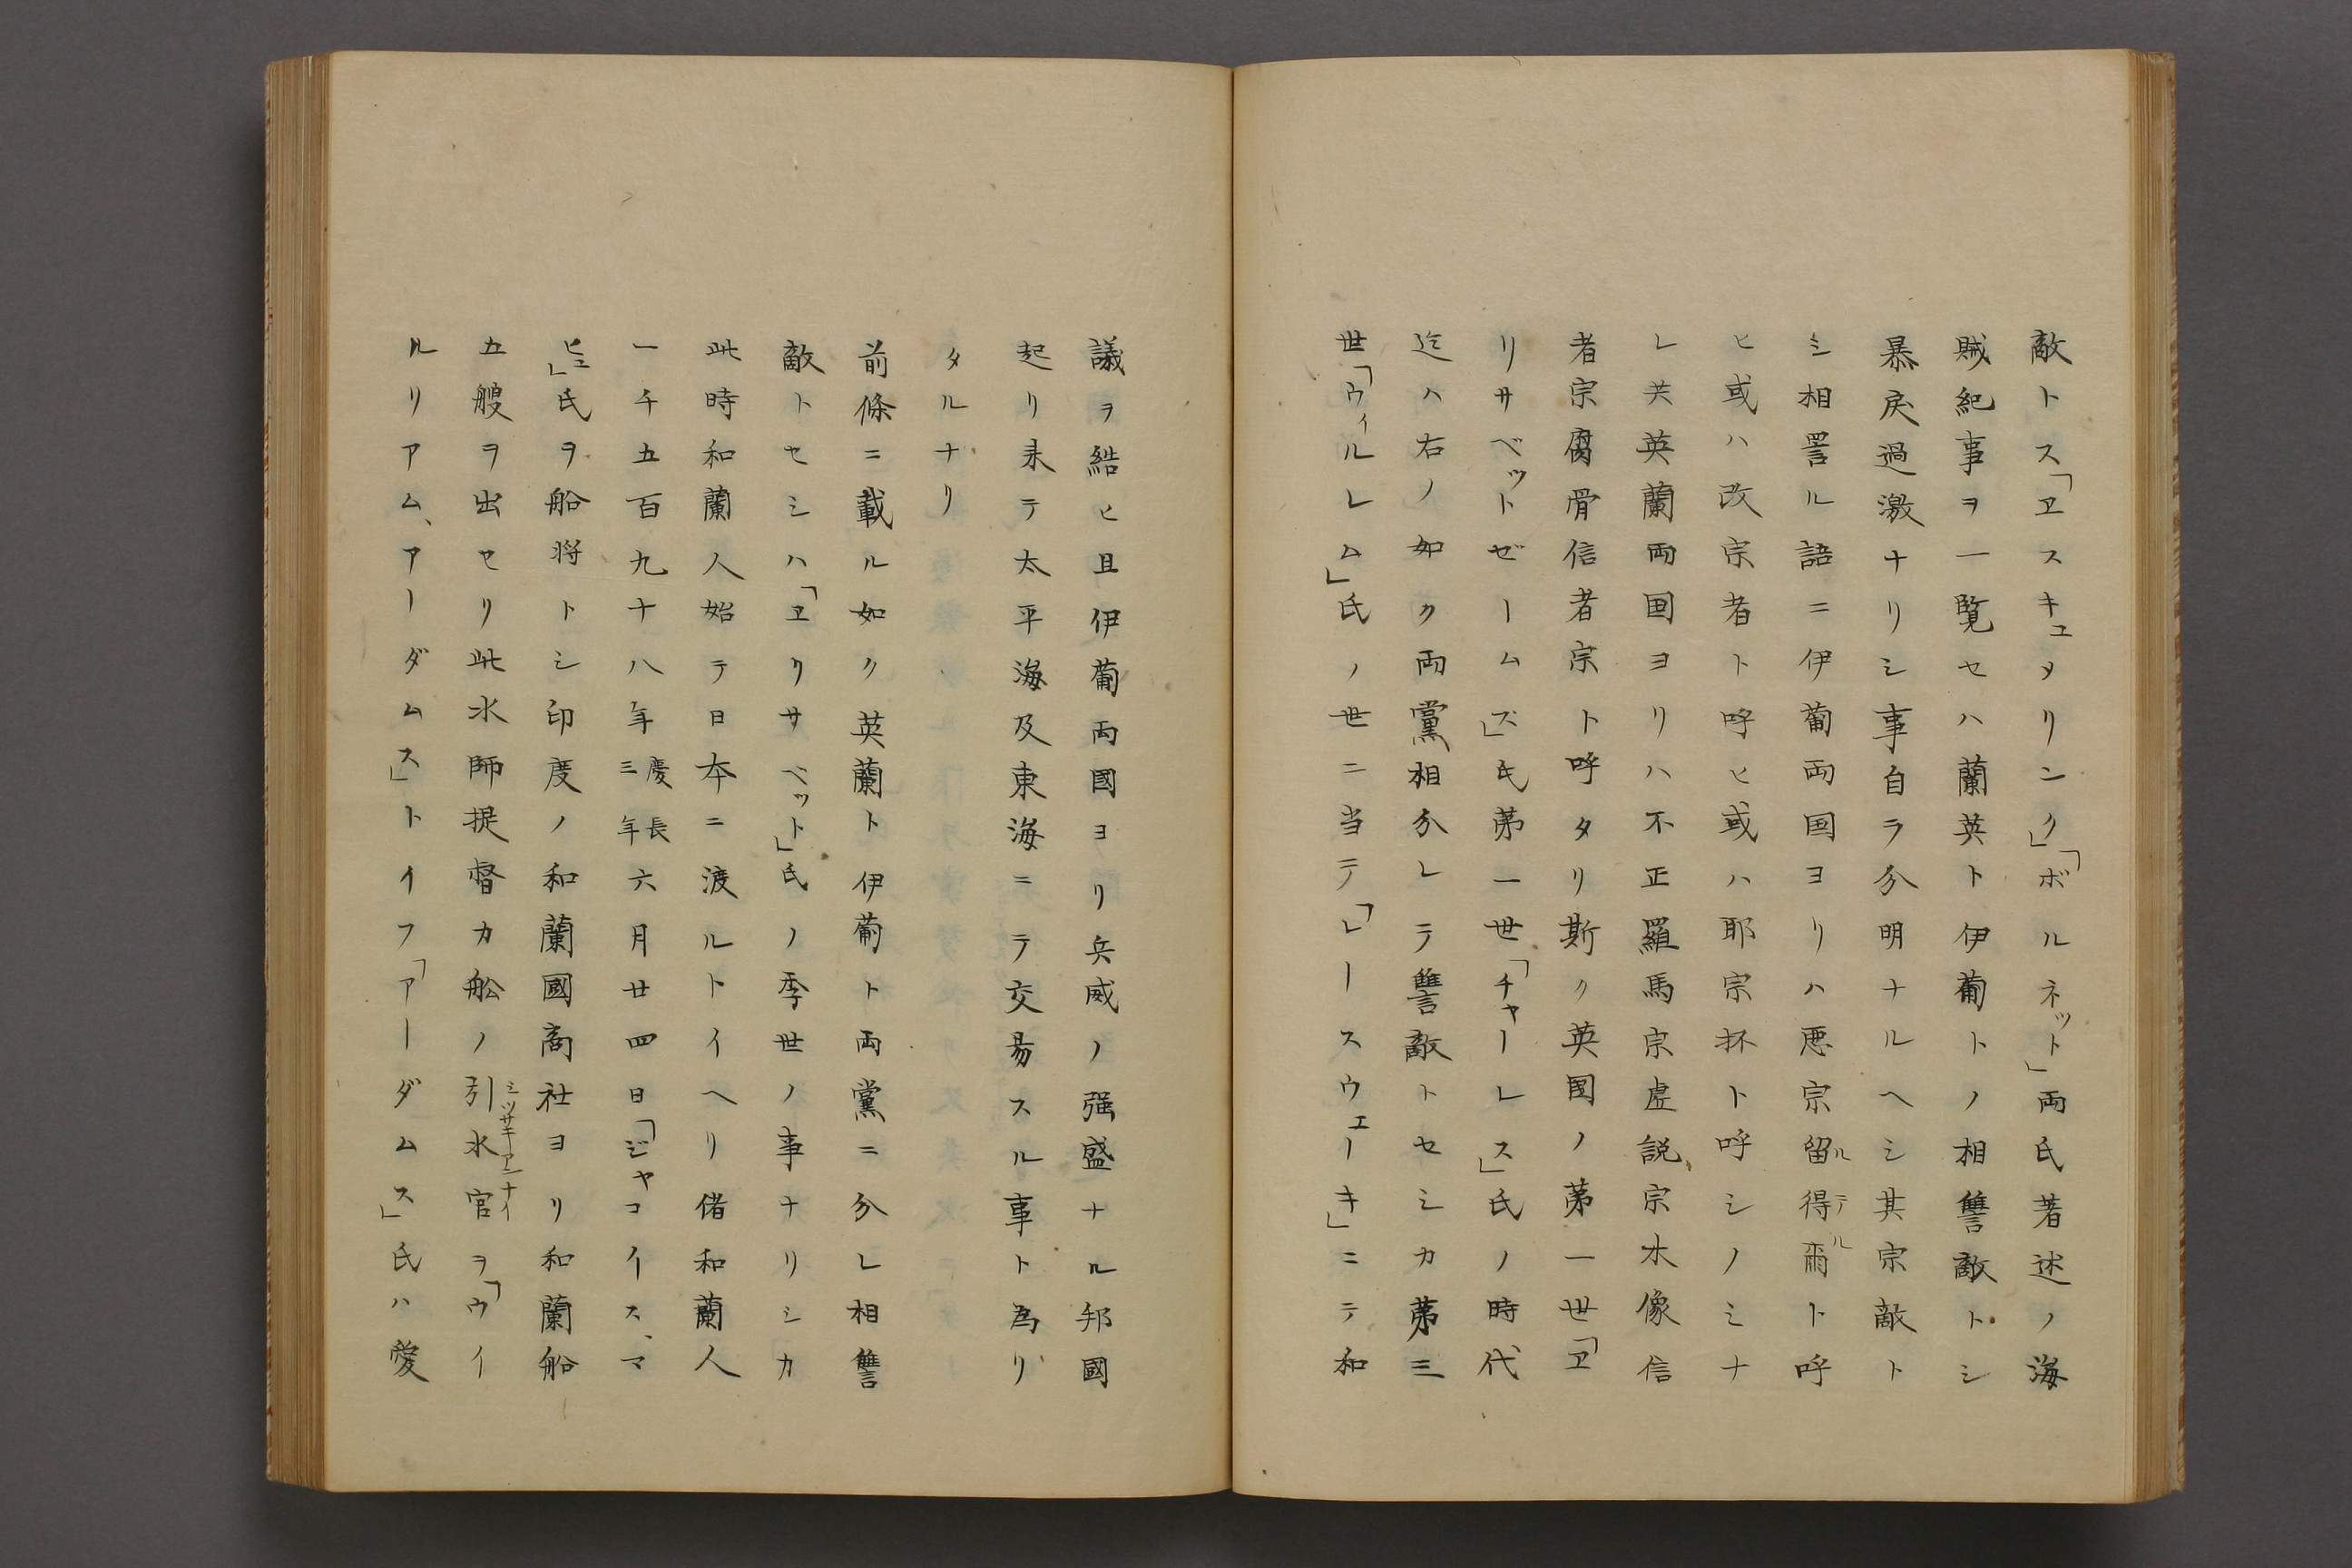 敵トス「ヱスキュメリンク」「ボルネット」両氏著述ノ海
賊紀事ヲ一覧セハ蘭英ト伊葡トノ相讐敵トシ
暴戻過激ナリシ事自ラ分明ナルヘシ其宗敵ト
シ相詈ル語ニ伊葡両国ヨリハ悪宗留得爾ト呼
ルテル
ヒ或ハ改宗者ト呼ヒ或ハ耶宗抔ト呼シノミナ
レ共英蘭両国ヨリハ不正羅馬宗虚説宗木像信
者宗腐骨信者宗ト呼タリ斯ク英国ノ第一世「ヱ
リサベットゼームズ」氏第一世「チャーレス」氏ノ時代
迄ハ右ノ如ク両黨相分レテ讐敵トセシカ第三
世「ウィルレム」氏ノ世ニ当テ「レースウェーキ」ニテ和
議ヲ結ヒ且伊葡両國ヨリ兵威ノ强盛ナル邦國
起リ来テ太平海及東海ニテ交易スル事ト為リ
タルナリ
前條ニ載ル如ク英蘭ト伊葡ト両黨ニ分レ相讐
敵トセシハ「ヱリサベット」氏ノ季世ノ事ナリシカ
此時和蘭人始テ日本ニ渡ルトイヘリ偖和蘭人
一千五百九十八年慶長三年六月廿四日「ジャコイス、マ
ヒュ」氏ヲ船将トシ印度ノ和蘭國商社ヨリ和蘭船
五艘ヲ出セリ此水師提督カ舩ノ引水官ヲ「ウイ
ミツサキアンナイ
ルリアム、アーダムス」トイフ「アーダムス」氏ハ愛